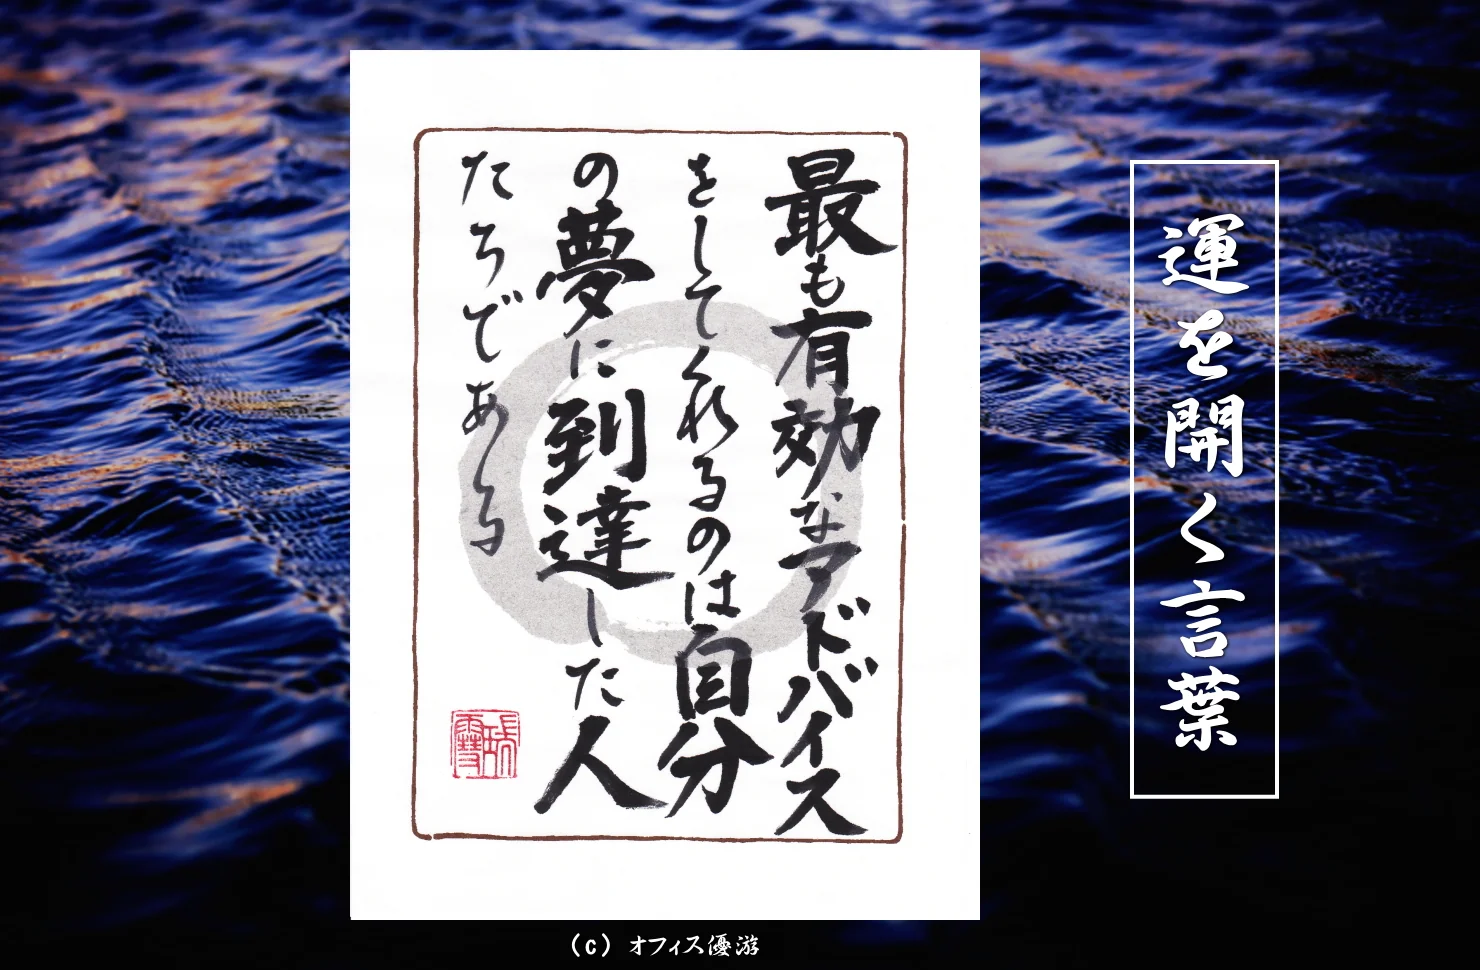 運を開く言葉
最も有効なアドバイス
をしてくれるのは自分
の夢に到達した人
たちである
(c) オフィス優游